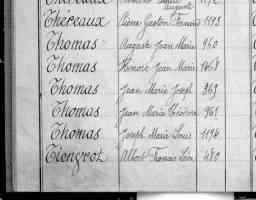 Théreaux Gaston François 1193
Thomas Auguste Jean Marie 960
Thomas Honoré Jean Marie 1468
Thomas Jean Marie Joseph 363
Thomas Jean Marie 961
Thomas Joseph Marie Louis 1196
Tiengrot Albert François 480